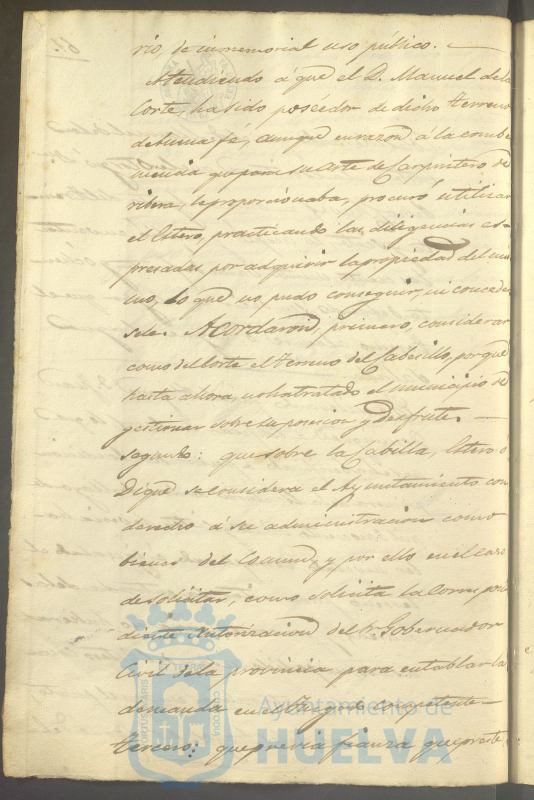 rio, de inmemorial uso público. —
Atendiendo á que el D. Manuel de la
Corte, ha sido poseédor de dicho Terreno
de buena fé, aunque en razon á la combe
niencia que para su arte de Carpintero de
rivera, le proporcionaba, procuró utilizar
el Estero, practicando las diligencias es-
presadas, por adquirir la propiedad del mis
mo, lo que no, pudo conseguir, ni concedér
sele. Acordaron, primero, considerar
como del Corte el Terreno del Cabesillo, porque
hasta ahora, no ha tratado el municipio de
gestionar sobre su posesion y disfrute. —
Segundo: que sobre la Cabilla, Estero ó
Dique se considera el Ayuntamiento con
derecho á su administracion como
bienes del Comun, y por ello en el caso
de solicitar, como solicita la Corres pon
diente Autorizacion del Sr. Gobernador
Civil de la provincia para entablar la
demanda en el Juzgado competente —
Tercero: que previa fianza que preste,
Ayuntamiento de
HUELVA